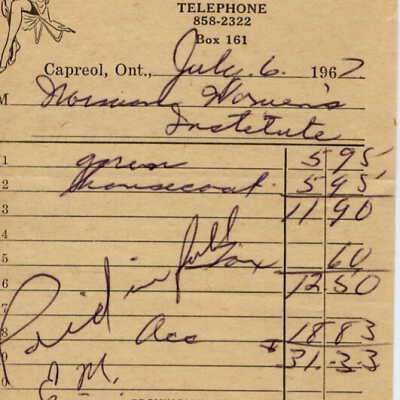 TELEPHONE
858-2322
Box 161
Capreol, Ont., July 6. 1967
M Women's
Institute
1 gown 5 95
2 housecoat 5 95
3 11 90
4
5 Tax 60
6 12.50
7 Paid in full
8 Acc 18 83
9 $ 31.33